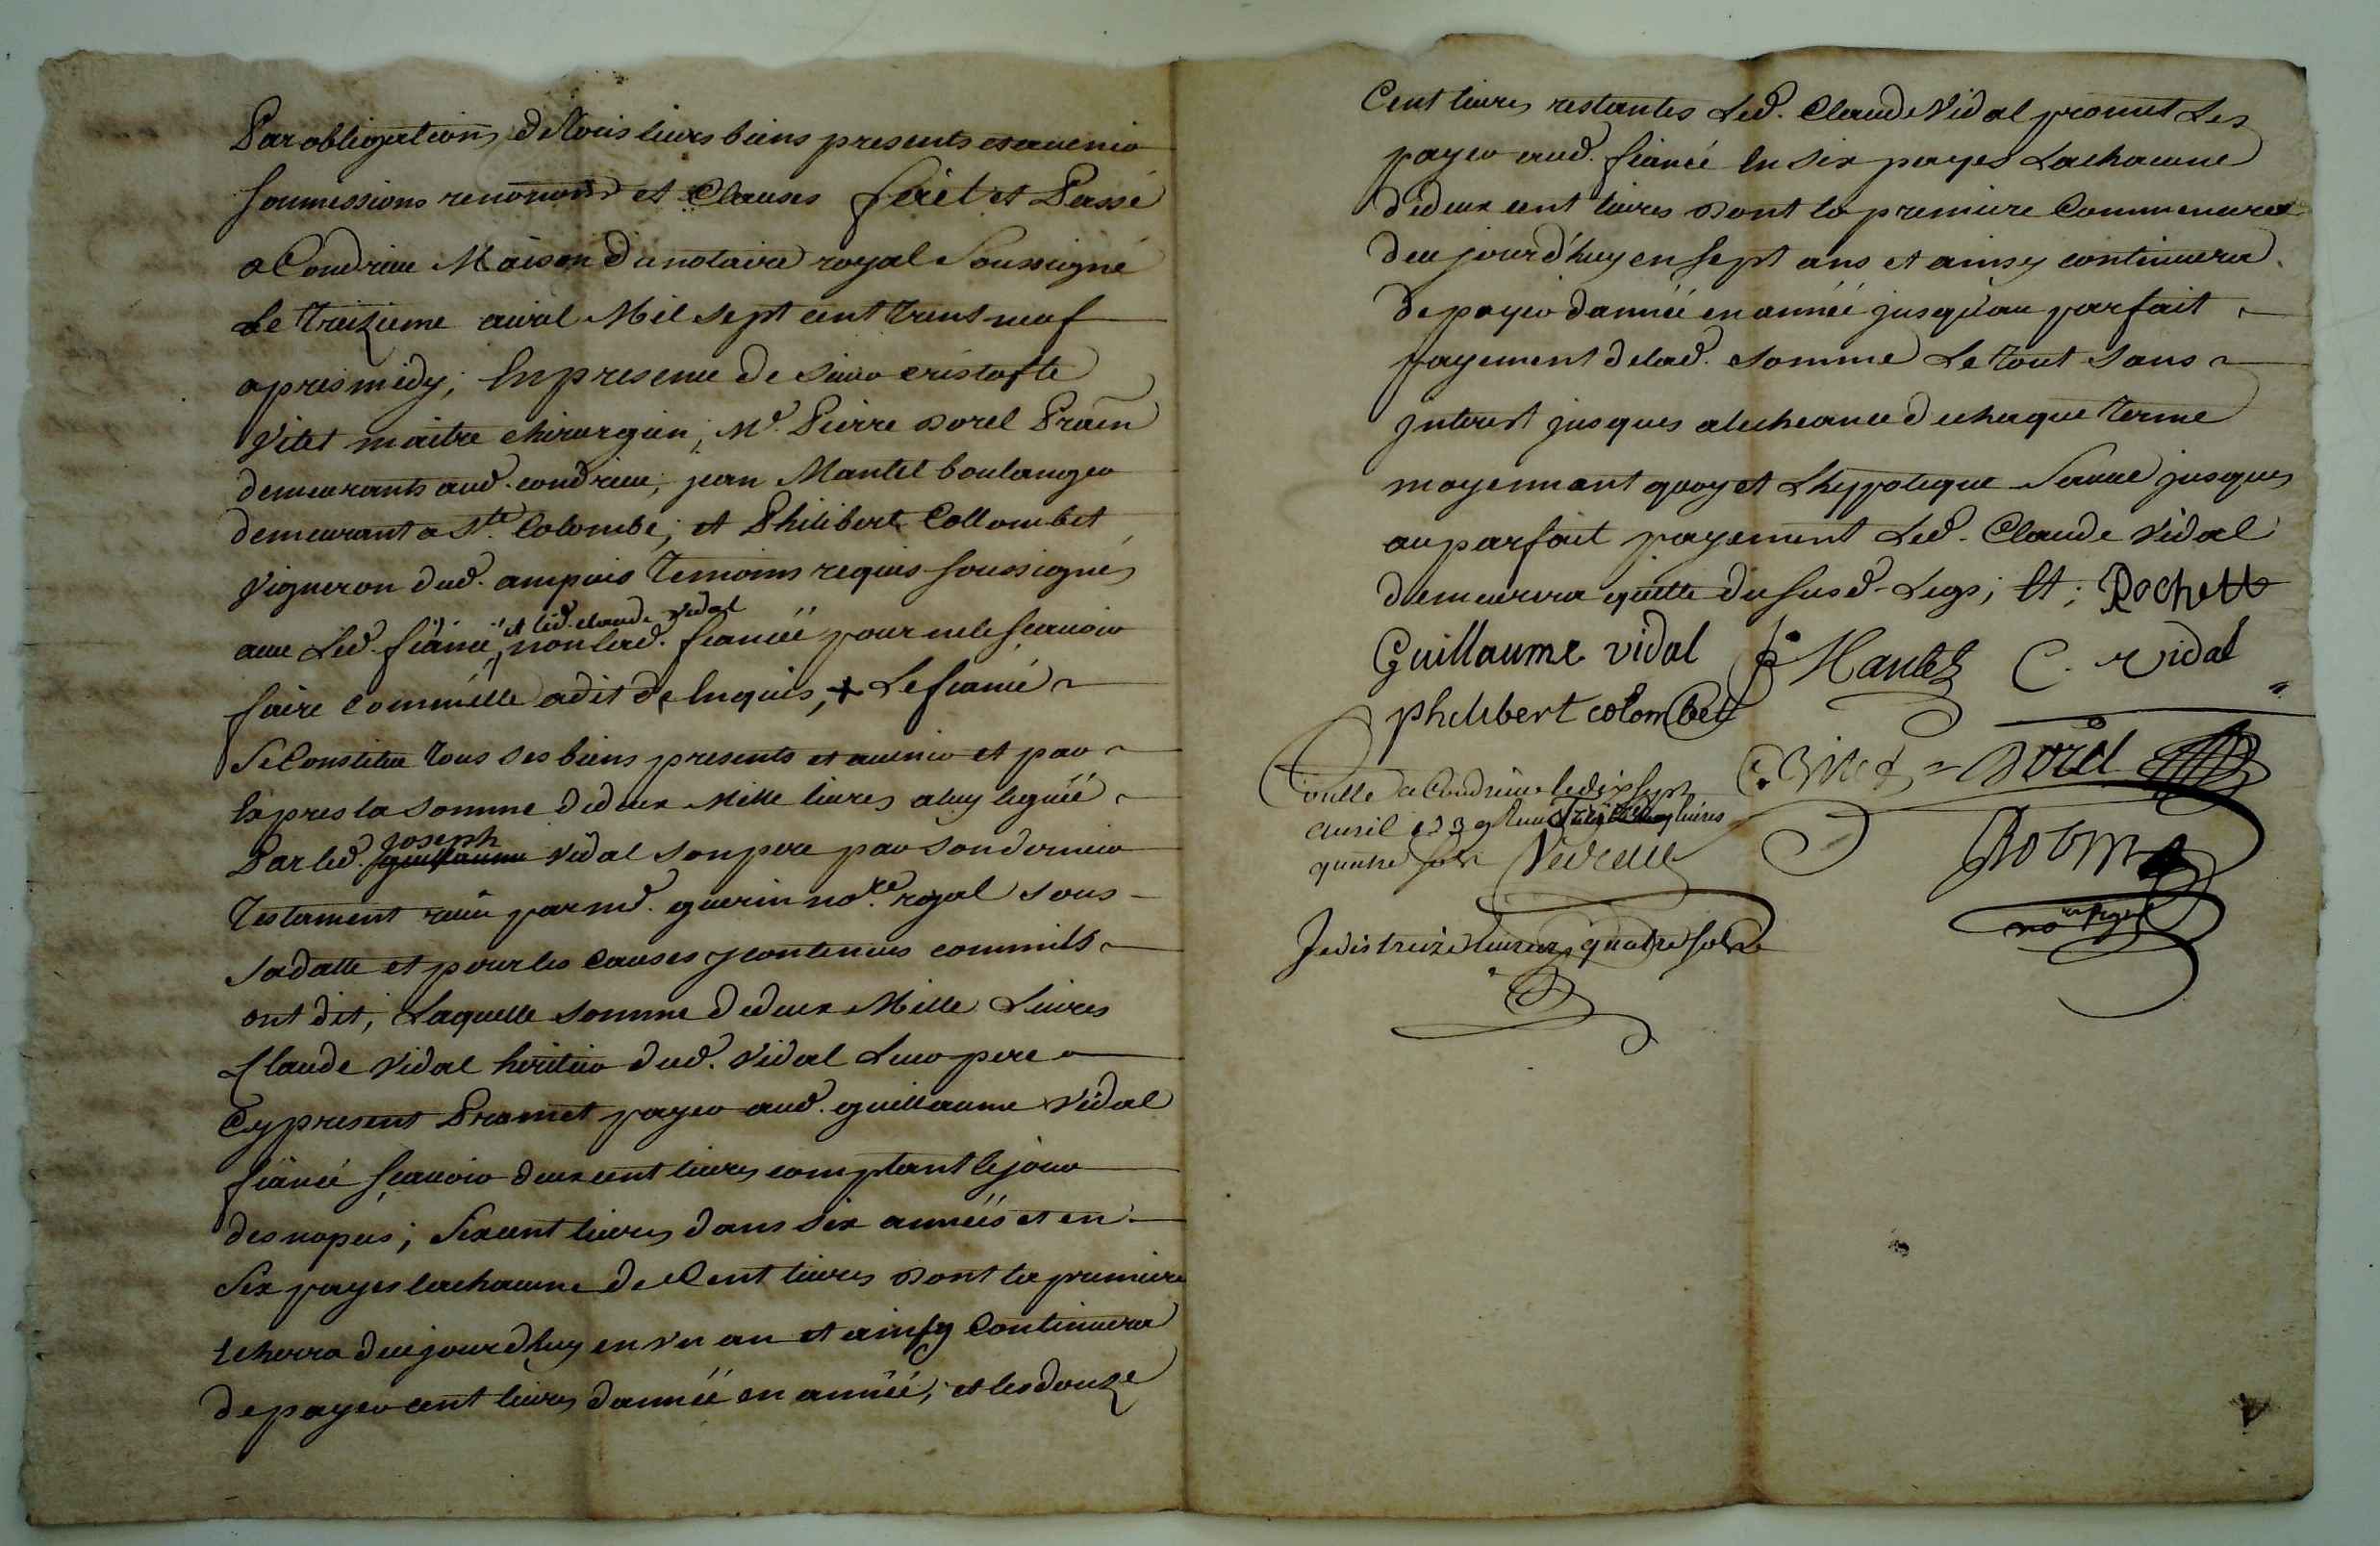 Par obligations de tous leurs biens presents et avenir
soumissions renonons et Clauses fait et Passé
a Condrieu Maison du notaire royal Soussigné
Le treizieme avril Mil sept cent trent neuf
apres midy; En presence de sieur cristofle
Vitet maitre chirurgien; Me. Pierre Dorel Pratn
demeurants aud. condrieu; jean Mantel boulanger
demeurant a Ste. Colombe; et Philibert Collombet
Vigneron dud. ampuis temoins requis soussignés
avec Led. fiancé, et led. claude vidal non lad. fiancéé pour ne le scavoir
faire comm'elle a dit de Enquis, + Le fiancé
se Constitue tous ses biens presents et avenir et par
Expres la somme de deux Mille livres a luy leguéé
Par led. guillaume joseph vidal son pere par son dernier
testament receu par md. guerin nore. royal sous
sa datte et pour les causes y contenues comm'ils
ont dit; Laquelle somme de deux Mille Livres
Claude Vidal heritier dud. Vidal Leur pere
Cy present Promet payer aud. guillaume Vidal
fiancé scavoir deux cent livres comptant le jour
des nopces; Six cent livres dans six annéés et en
Six payes lachacune de Cent livres dont la premiere
Echerra du jourdhuy en vn an et ainsy Continuera
de payer cent livres d'annéé en annéé; et les douze
Cent livres restantes Led. Claude Vidal promet Les
payer aud. fiancé En six payes Lachacune
de deux cent livres dont la premiere Commencera
du jourd'huy en sept ans et ainsy continuera
de payer d'annéé en annéé jusqu'au parfait
payement de lad. somme Le tout sans
jnterest jusques a lecheance de chaque terme
moyennant quoy et Lhypoteque Sauve jusques
au parfait payement Led. Claude Vidal
demeurera quitte du susd. Legs; Et; Rochette
Guillaume vidal J Mantel C. vidal
philibert colombet
C. Vitet Dorel
Conllé a Condrieu le dix sept
avril 1739 livres
quatre sols
Je dis treize livres quatre sols
nore royal